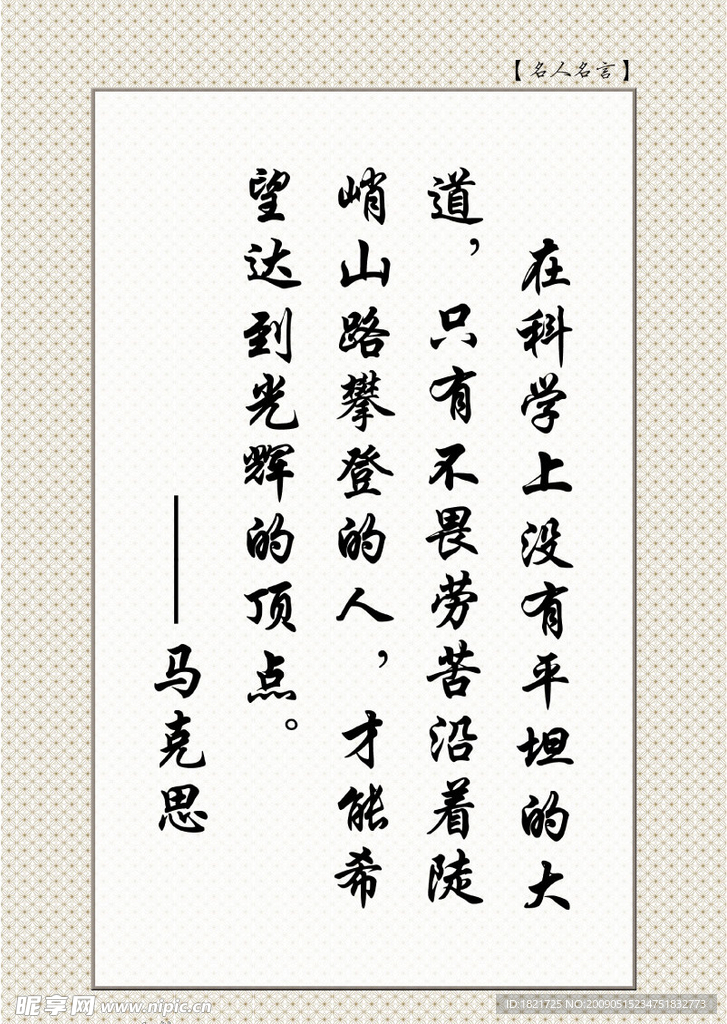 【名人名言】
在科学上没有平坦的大
道，只有不畏劳苦沿着陡
峭山路攀登的人，才能希
望达到光辉的顶点。
——马克思
昵享网 www.nipic.cn
ID:1821725 NO:20090515234751832773